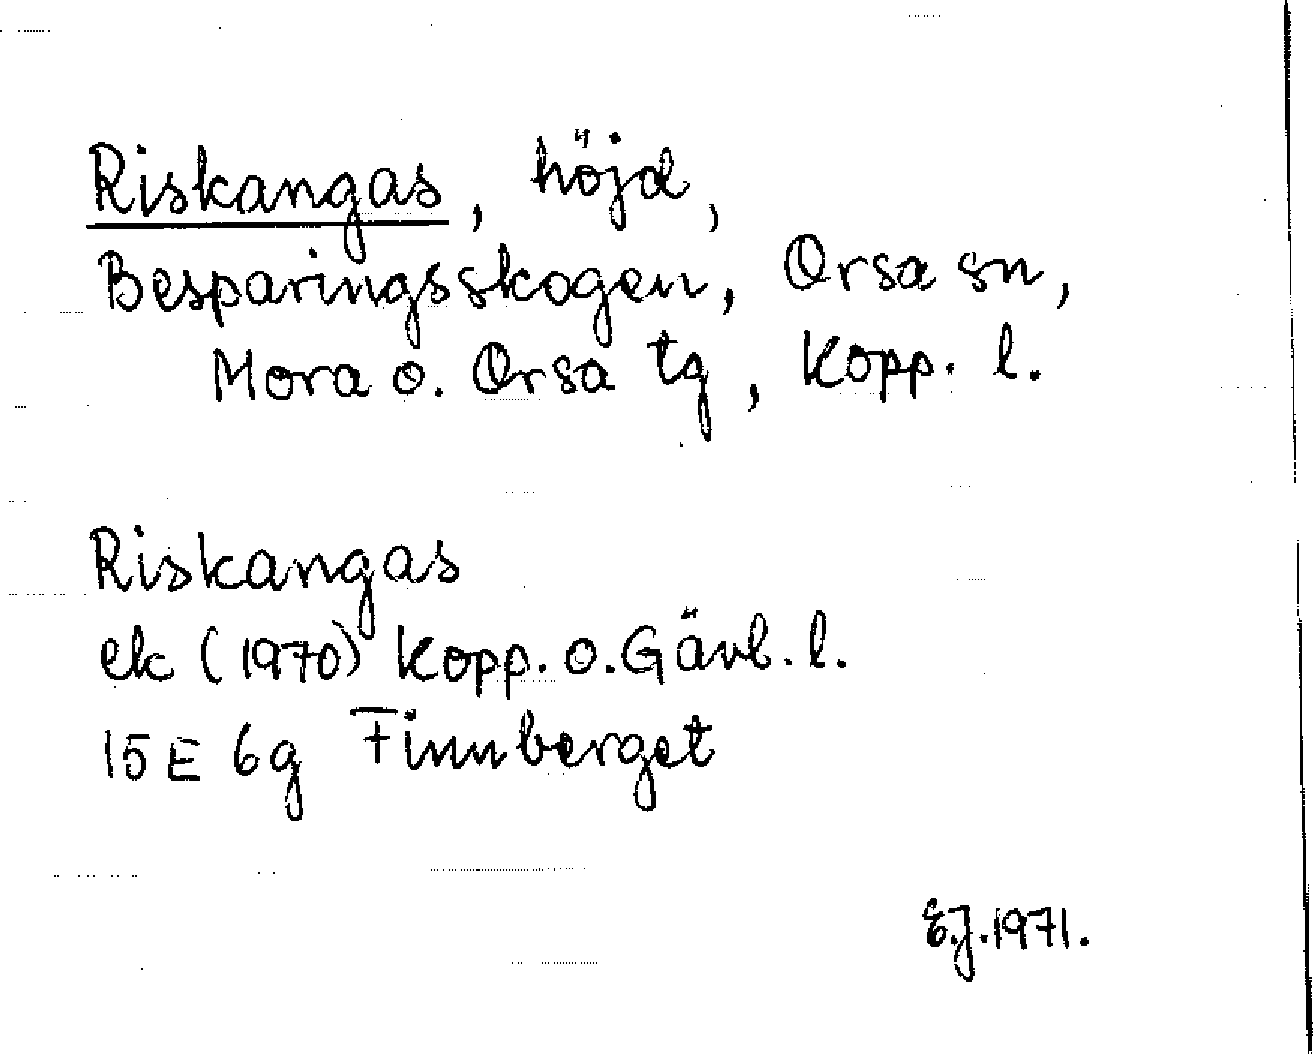 Riskangas, höjd,
Besparingsskogen, Orsa sn,
Mora o. Orsa tg, Kopp. l.
Riskangas
ek (1970) Kopp. o. Gävl. l.
15 E 6g Finnberget
E.J. 1971.